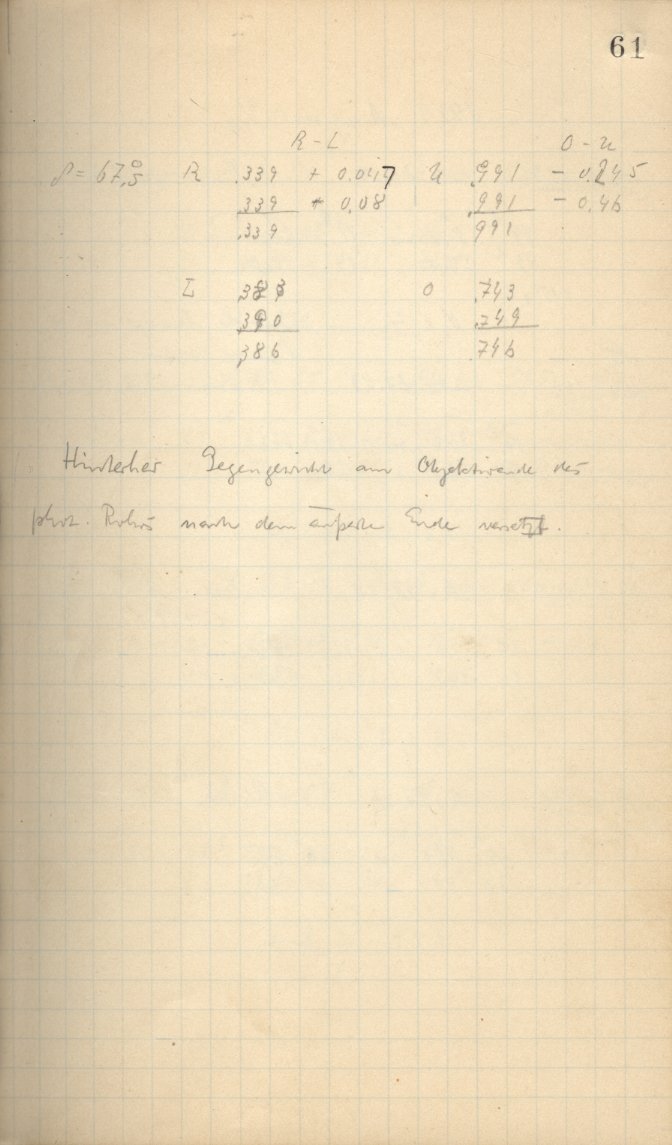 61
R-L O-U
δ = 67,5° R .339 + 0.047 U .991 - 0.245
.339 + 0,08 .991 - 0,46
.339 991
L .383 O .743
.390 .749
.386 746
Hinterher Gegengewicht am Objektivende des
phot. Rohrs nach dem äußerste Ende versetzt.